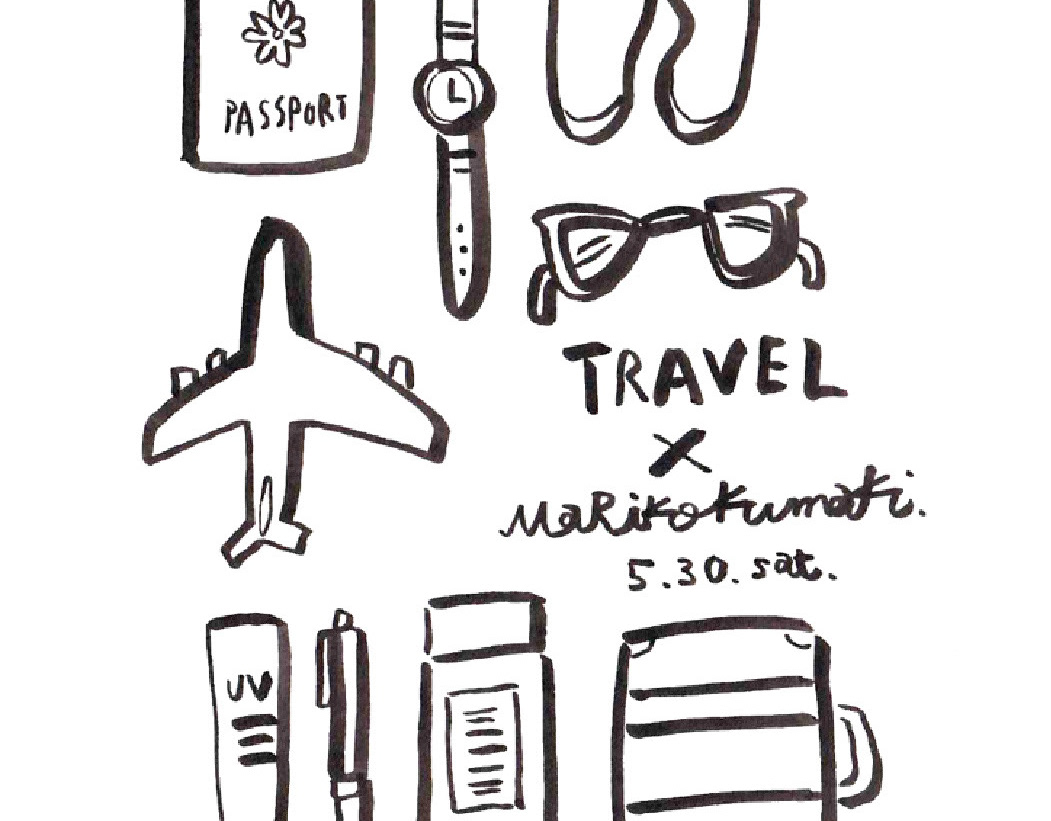 PASSPORT
TRAVEL
x
MaRiko Kumaki.
5.30.sat.
UV